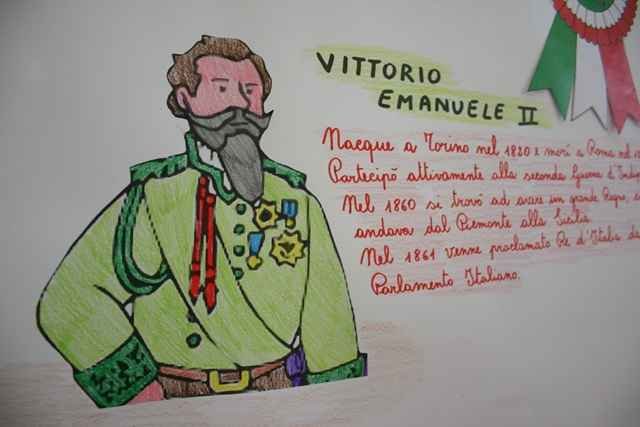 VITTORIO
EMANUELE II
Nacque a Torino nel 1820 e morì a Roma nel
Partecipò attivamente alla seconda Guerra d'
Nel 1860 si trovò ad avere un grande Regno,
andava dal Piemonte alla Sicilia.
Nel 1861 venne proclamato Re d'Italia da
Parlamento Italiano.